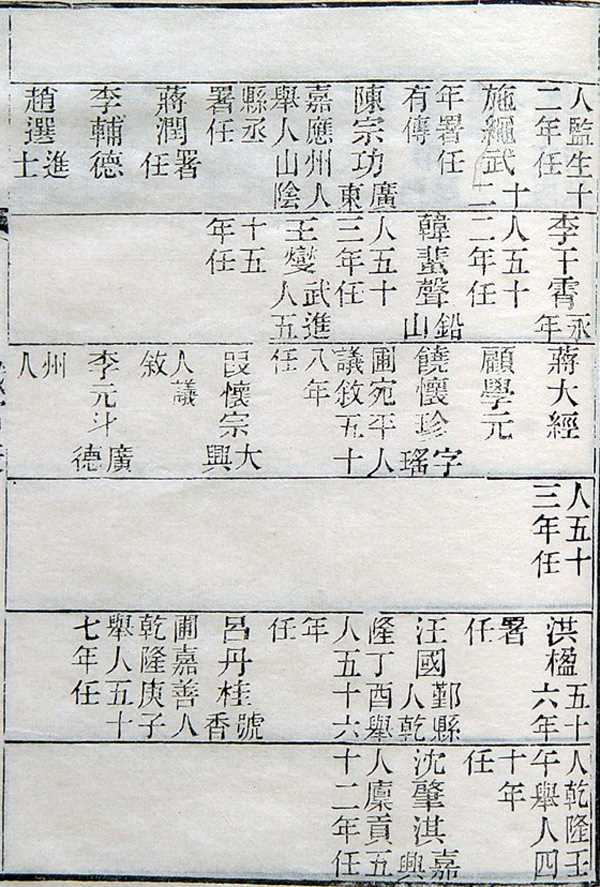 人監生十
二年任
施繩武十二
年署任
有傳
陳宗功廣東
嘉應州人
舉人山陰
縣丞
署任
蔣潤署任
李輔德
趙選進士
李干霄永年
人五十
二年任
韓蜚聲鉛山
人五十
三年任
王燮武進人五
十五
年任
蔣大經
顧學元
饒懷珍字瑤
圃宛平人
議敘五十
八年
任
段懷宗大興
人議
敘
李元斗廣德
州
人
人五十
三年任
洪楹五十六年
署
任
汪國鄞縣人乾
隆丁酉舉
人五十六
年
任
呂丹桂號香
圃嘉善人
乾隆庚子
舉人五十
七年任
人乾隆壬
午舉人四
十年
任
沈肇淇嘉興
人廩貢五
十二年任